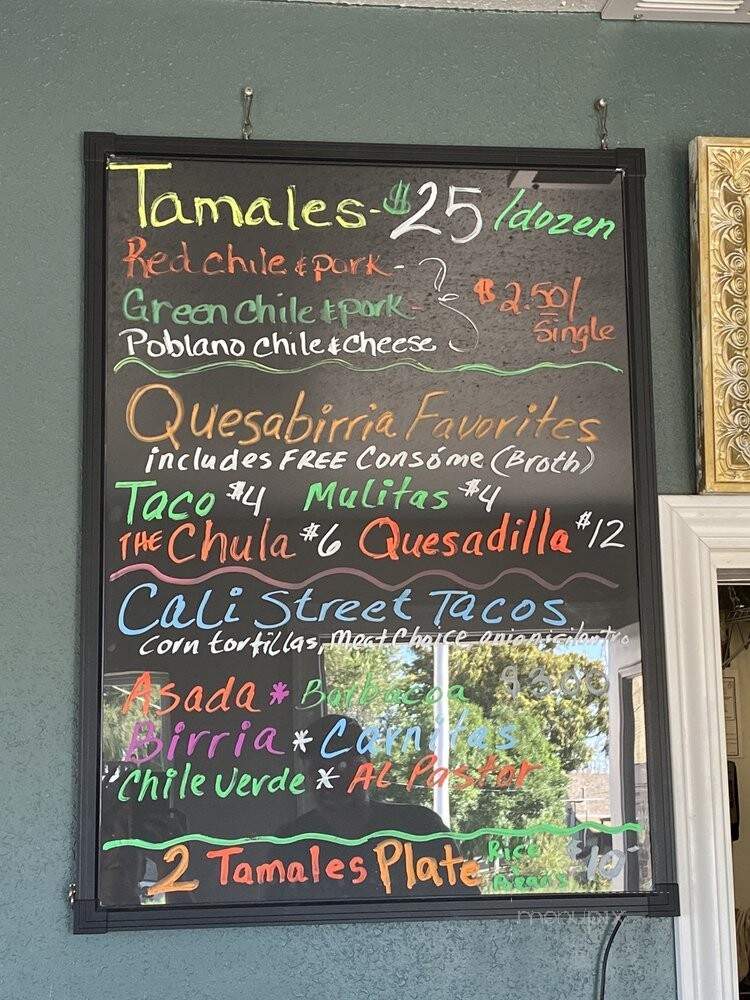 Tamales - $25 /dozen
Red chile & pork -
Green chile & pork - $2.50/
Single
Poblano chile & cheese
Quesabirria Favorites
includes FREE Consóme (Broth)
Taco $4 Mulitas $4
THE Chula $6 Quesadilla $12
Cali Street Tacos
corn tortillas, Meat Choice, onion, cilantro
Asada * Barbacoa $3.00
Birria * Carnitas
Chile Verde * AL Pastor
2 Tamales Plate Rice $10
Beans
menupix